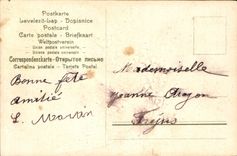 Postkarte
Levelező-Lap - Dopisnice
Postcard
Carte postale - Briefkaart
Weltpostverein
Union postale universelle.
Correspondenzkarte - Открытое письмо
Cartolina postale - Tarjeta Postal
Bonne fête
amitié
Mademoiselle
Jeanne